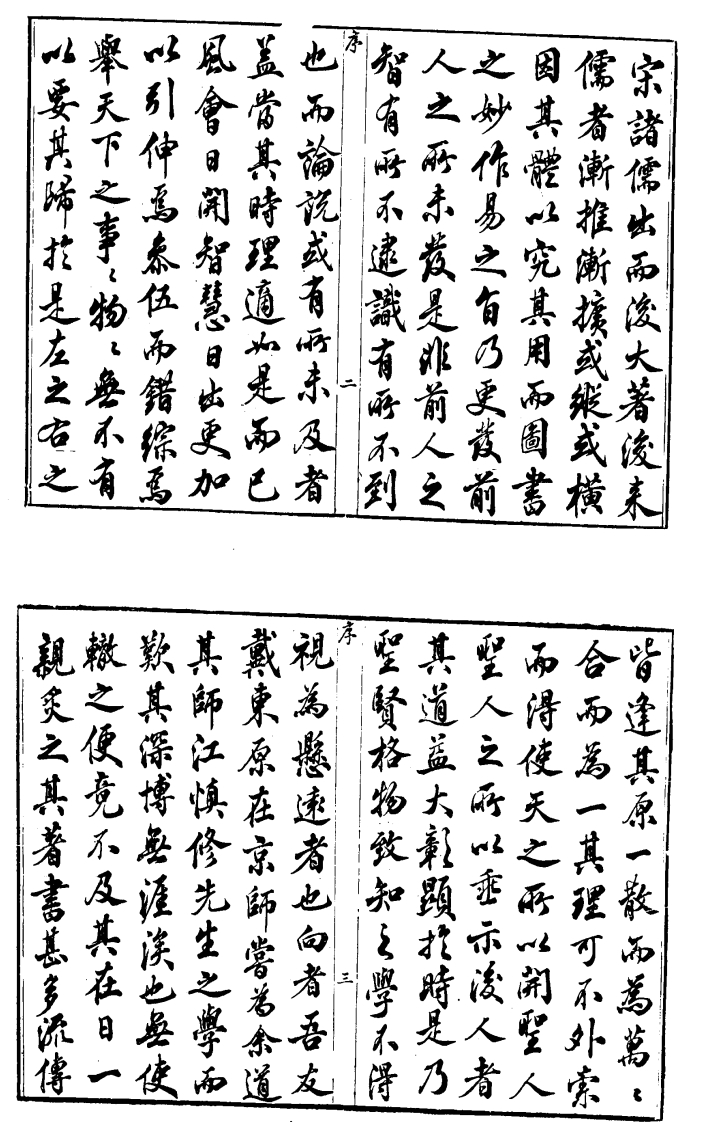 宋諸儒出而後大著後来
儒者漸推漸擴或縱或橫
因其體以究其用而圖書
之妙作易之旨乃更發前
人之所未發是非前人之
智有所不逮識有所不到
序
二
也而論說或有所未及者
蓋當其時理適如是而已
風會日開智慧日出更加
以引伸焉叅伍而錯綜焉
舉天下之事〻物〻無不有
以要其歸於是左之右之
皆逢其原一散而為萬〻
合而為一其理可不外索
而得使天之所以開聖人
聖人之所以垂示後人者
其道益大彰顯於時是乃
聖賢格物致知之學不得
序
三
視為懸遠者也向者吾友
戴東原在京師嘗為余道
其師江慎修先生之學而
歎其深博無涯涘也無使
轍之便竟不及其在日一
親炙之其著書甚多流傳